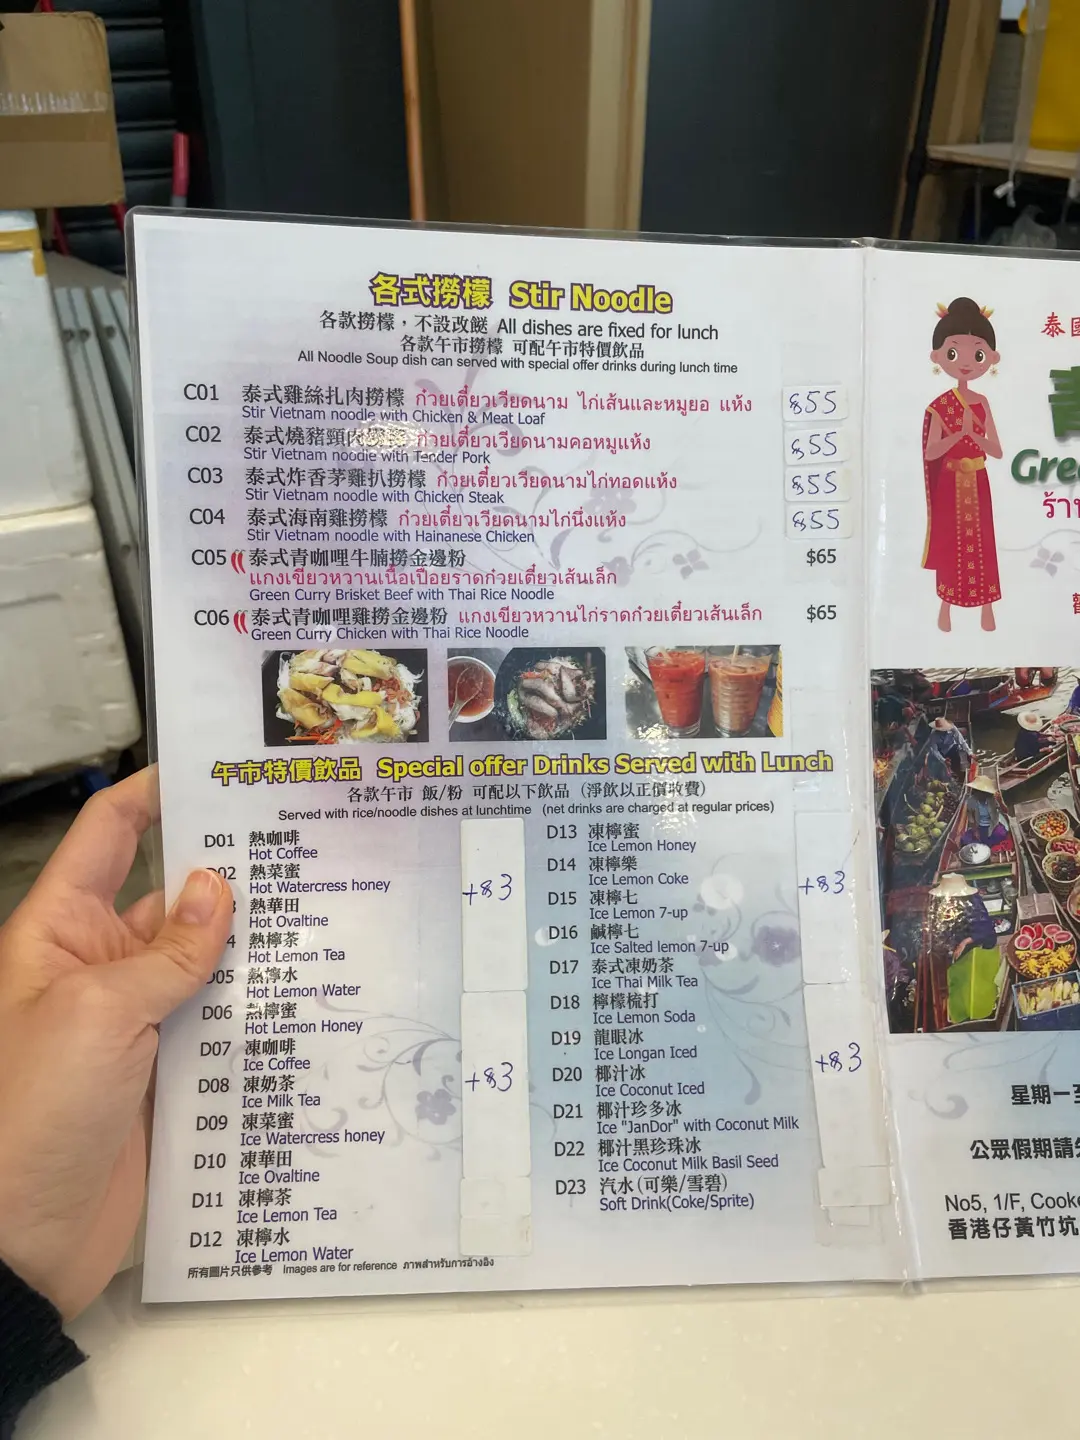 各式撈檬 Stir Noodle
各款撈檬，不設改餸 All dishes are fixed for lunch
各款午市撈檬 可配午市特價飲品
All Noodle Soup dish can served with special offer drinks during lunch time
C01 泰式雞絲扎肉撈檬 ก๋วยเตี๋ยวเวียดนาม ไก่เส้นและหมูยอ แห้ง $55
Stir Vietnam noodle with Chicken & Meat Loaf
C02 泰式燒豬頸肉撈檬 ก๋วยเตี๋ยวเวียดนามคอหมูแห้ง $55
Stir Vietnam noodle with Tender Pork
C03 泰式炸香茅雞扒撈檬 ก๋วยเตี๋ยวเวียดนามไก่ทอดแห้ง $55
Stir Vietnam noodle with Chicken Steak
C04 泰式海南雞撈檬 ก๋วยเตี๋ยวเวียดนามไก่นึ่งแห้ง $55
Stir Vietnam noodle with Hainanese Chicken
C05 泰式青咖哩牛腩撈金邊粉 $65
แกงเขียวหวานเนื้อเปื่อยราดก๋วยเตี๋ยวเส้นเล็ก
Green Curry Brisket Beef with Thai Rice Noodle
C06 泰式青咖哩雞撈金邊粉 แกงเขียวหวานไก่ราดก๋วยเตี๋ยวเส้นเล็ก $65
Green Curry Chicken with Thai Rice Noodle
午市特價飲品 Special offer Drinks Served with Lunch
各款午市 飯/粉 可配以下飲品 (淨飲以正價收費)
Served with rice/noodle dishes at lunchtime (net drinks are charged at regular prices)
D01 熱咖啡
Hot Coffee
02 熱菜蜜
Hot Watercress honey
熱華田
Hot Ovaltine
4 熱檸茶
Hot Lemon Tea
D05 熱檸水
Hot Lemon Water
D06 熱檸蜜
Hot Lemon Honey
D07 凍咖啡
Ice Coffee
D08 凍奶茶
Ice Milk Tea
D09 凍菜蜜
Ice Watercress honey
D10 凍華田
Ice Ovaltine
D11 凍檸茶
Ice Lemon Tea
D12 凍檸水
Ice Lemon Water
+$3
+$3
D13 凍檸蜜
Ice Lemon Honey
D14 凍檸樂
Ice Lemon Coke
D15 凍檸七
Ice Lemon 7-up
D16 鹹檸七
Ice Salted lemon 7-up
D17 泰式凍奶茶
Ice Thai Milk Tea
D18 檸檬梳打
Ice Lemon Soda
D19 龍眼冰
Ice Longan Iced
D20 椰汁冰
Ice Coconut Iced
D21 椰汁珍多冰
Ice "JanDor" with Coconut Milk
D22 椰汁黑珍珠冰
Ice Coconut Milk Basil Seed
D23 汽水(可樂/雪碧)
Soft Drink(Coke/Sprite)
+$3
+$3
所有圖片只供參考 Images are for reference ภาพสำหรับการอ้างอิง
泰國
青
Gree
ร้าน
星期一至
公眾假期請
No5, 1/F, Cooke
香港仔黃竹坑